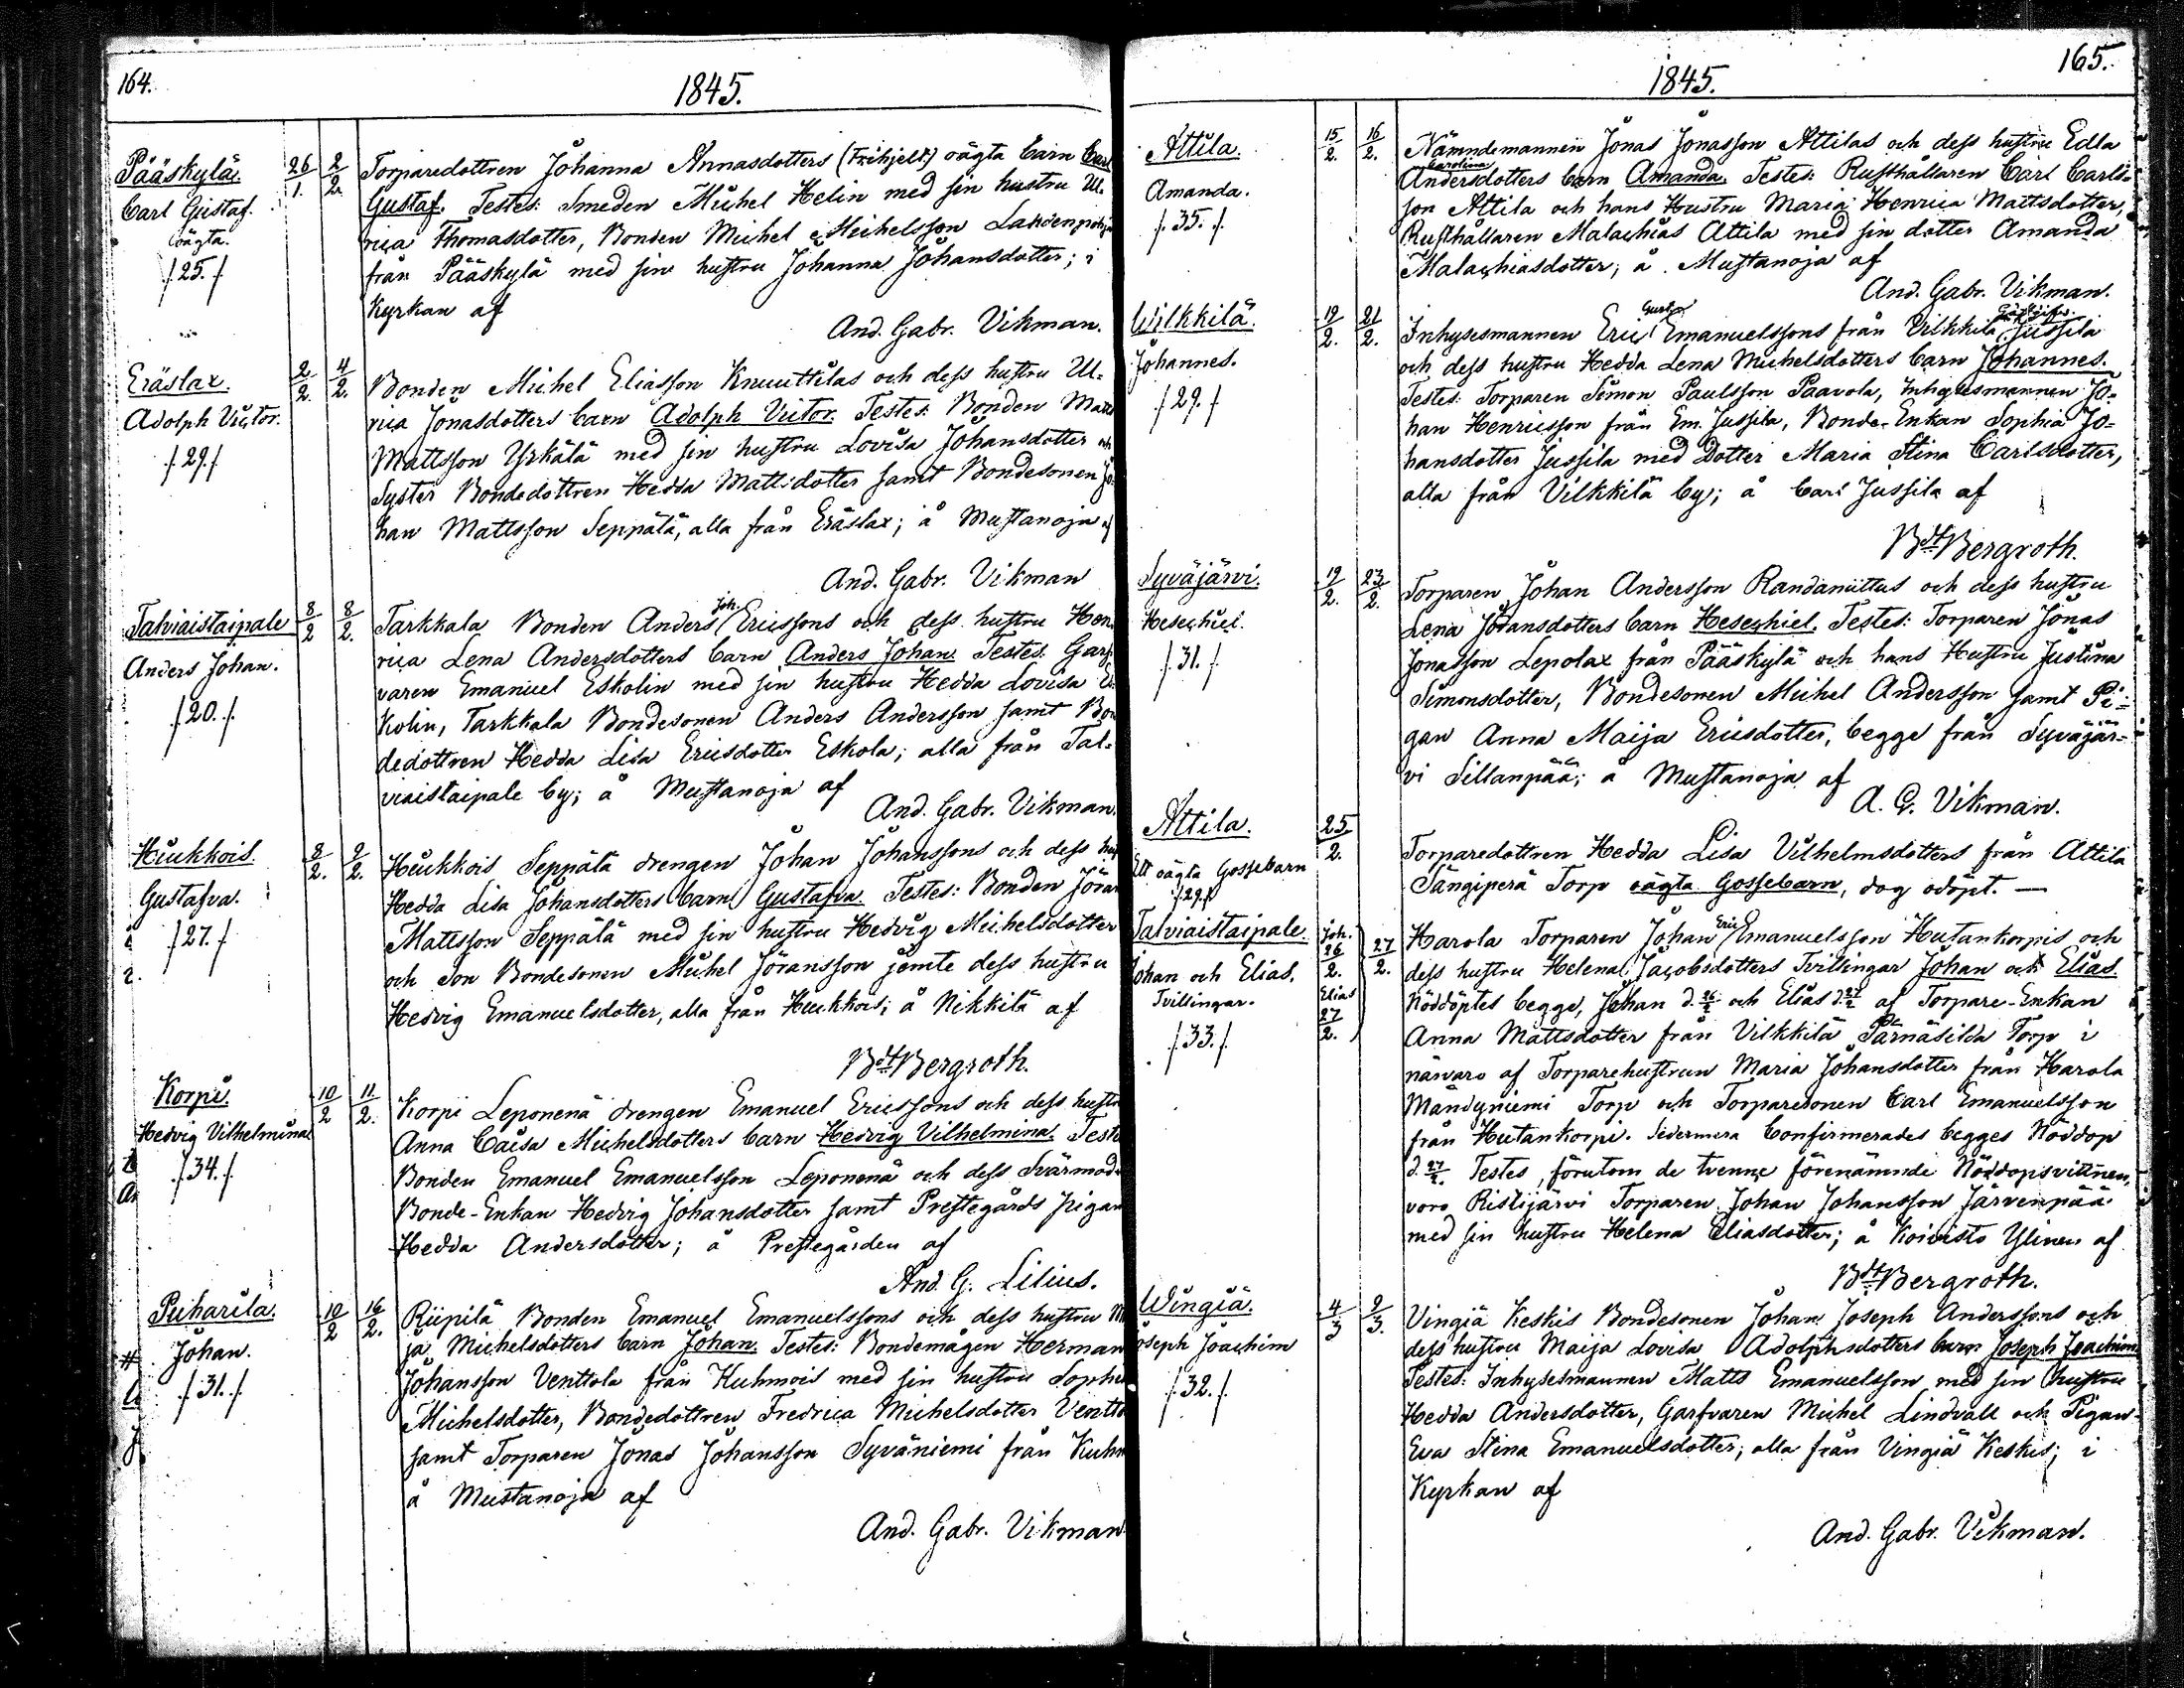 164.
1845.
Pääskylä.
Carl Gustaf.
oägta.
/.25./
26/1.
2/2.
Torparedottren Johanna Annasdotters (Frihjelt) oägta barn Carl
Gustaf. Testes: Smeden Michel Helin med sin hustru Ul-
rica Thomasdotter, Bonden Michel Michelsson
från Pääskylä med sin hustru Johanna Johansdotter; i
Kyrkan af
And. Gabr. Vikman.
Eräslax.
Adolph Victor.
/.29./
2/2.
4/2.
Bonden Michel Eliasson Knuuttilas och dess hustru Ul-
rica Jonasdotters barn Adolph Victor. Testes: Bonden Matts
Mattsson Yrkälä med sin hustru Lovisa Johansdotter och
Syster Bondedottren Hedda Mattsdotter samt Bondesonen Jo-
han Mattsson Seppälä, alla från Eräslax; å Mustanoja af
And. Gabr. Vikman
Talviaistaipale
Anders Johan.
/.20./.
8/2
8/2.
Tarkkala Bonden Anders Joh. Ericssons och dess hustru Hen-
rica Lena Andersdotters barn Anders Johan. Testes: Garf-
varen Emanuel Eskolin med sin hustru Hedda Lovisa Es-
kolin, Tarkkala Bondesonen Anders Andersson samt Bon-
dedottren Hedda Lisa Ericsdotter Eskola; alla från Tal-
viaistaipale by; å Mustanoja af
And. Gabr. Vikman.
Huckkois.
Gustafva.
/.27./
8/2.
9/2.
Huckkois Seppälä drengen Johan Johanssons och dess hust
Hedda Lisa Johansdotters barn Gustafva. Testes: Bonden Jöran
Mattsson Seppälä med sin hustru Hedvig Michelsdotter
och Son Bondesonen Michel Jöransson jemte dess hustru
Hedvig Emanuelsdotter, alla från Huckkois; å Nikkilä af
Bdt Bergroth.
Korpi.
Hedvig Vilhelmina
/.34./
10/2
11/2.
Korpi Leponenä drengen Emanuel Ericssons och dess hustru
Anna Caisa Michelsdotters barn Hedvig Vilhelmina. Testes
Bonden Emanuel Emanuelsson Leponenä och dess Svärmoder
Bonde-Enkan Hedvig Johansdotter samt Prestegårds pigan
Hedda Andersdotter; å Prestegården af
And. G. Lilius.
Puharila.
Johan.
/.31./
10/2
16/2.
Riipilä Bonden Emanuel Emanuelssons och dess hustru Ma
ja Michelsdotters barn Johan. Testes: Bondemågen Herman
Johansson Venttola från Kuhmois med sin hustru Sophia
Michelsdotter, Bondedottren Fredrica Michelsdotter Ventto
samt Torparen Jonas Johansson Syväniemi från Kuhm
å Mustanoja af
And. Gabr. Vikman
165.
1845.
Attila.
Amanda.
/.35./.
15/2.
16/2.
Nämndemannen Jonas Jonasson Attilas och dess hustru Edla
Carolina
Andersdotters barn Amanda. Testes: Rusthållaren Carl Carls-
son Attila och hans Hustru Maria Henrica Mattsdotter,
Rusthållaren Malachias Attila med sin dotter Amanda
Malachiasdotter; å Mustanoja af
And. Gabr. Vikman.
Wilkkilä.
Johannes.
/.29./
19/2.
21/2.
Inhysesmannen Eric Gustaf Emanuelssons från Vilkkilä Jussila
och dess hustru Hedda Lena Michelsdotters barn Johannes.
Testes: Torparen Simon Paulsson Paavola, Inhysesmannen Jo-
han Henricsson från Em. Jussila, Bonde-Enkan Sophia Jo-
hansdotter Jussila med Dotter Maria Stina Carlsdotter,
alla från Vilkkilä by; å Carl Jussila af
Bdt Bergroth.
Syväjärvi.
Hesechiel.
/.31./.
19/2.
23/2.
Torparen Johan Andersson Randanittus och dess hustru
Lena Johansdotters barn Hesechiel. Testes: Torparen Jonas
Jonasson Lepolax från Pääskylä och hans Hustru Justina
Simonsdotter, Bondesonen Michel Andersson samt Pi-
gan Anna Maija Ericsdotter, begge från Syväjär-
vi Sillanpää; å Mustanoja af
A. G. Vikman.
Attila.
Ett oägta Gossebarn
/.29./
25/2.
Torparedottren Hedda Lisa Vilhelmsdotters från Attila
Sängiperä Torp oägta Gossebarn, dog odöpt. —
Talviaistaipale.
Johan och Elias.
Tvillingar.
/.33./.
Joh. 26/2.
Elias 27/2.
27/2.
Harola Torparen Johan Eric Emanuelsson Hutankorpis och
dess hustru Helena Jacobsdotters Tvillingar Johan och Elias.
Nöddöptes begge, Johan d. 26/2 och Elias d. 27/2 af Torpare-Enkan
Anna Mattsdotter från Vilkkilä Pärnäsilda Torp i
närvaro af Torparehustrun Maria Johansdotter från Harola
Mändyniemi Torp och Torparesonen Carl Emanuelsson
från Hutankorpi. Sedermera Confirmerades begges Nöddop
d. 27/2. Testes, förutom de tvenne förenämnde Nöddopsvittnen,
voro Ristijärvi Torparen Johan Johansson Järvenpää
med sin hustru Helena Eliasdotter; å Koivisto Ylinen af
Bdt Bergroth.
Wingiä.
Joseph Joachim
/.32./.
4/3
9/3.
Vingiä Keskis Bondesonen Johan Joseph Anderssons och
dess hustru Maija Lovisa Adolphsdotters barn Joseph Joachim
Testes: Inhysesmannen Matts Emanuelsson med sin hustru
Hedda Andersdotter, Garfvaren Michel Lindvall och Pigan
Eva Stina Emanuelsdotter, alla från Vingiä Keskis; i
Kyrkan af
And. Gabr. Vikman.